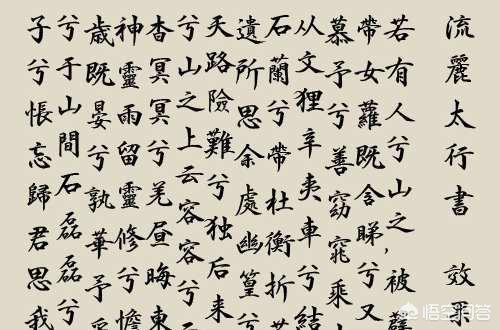 流麗太行書 效果
若有人兮山之,被薜
帶女蘿既含睇兮又
慕予兮善窈窕乘
从文狸辛夷車兮結
石蘭兮帶杜衡折
遺所思余處幽篁兮
天路險難兮独后来
兮山之上云容容兮
杳冥冥兮羌昼晦東
神靈雨留靈修兮憺
歲既晏兮孰華予
兮于山間石磊磊兮
子兮悵忘歸君思我
悟空问答